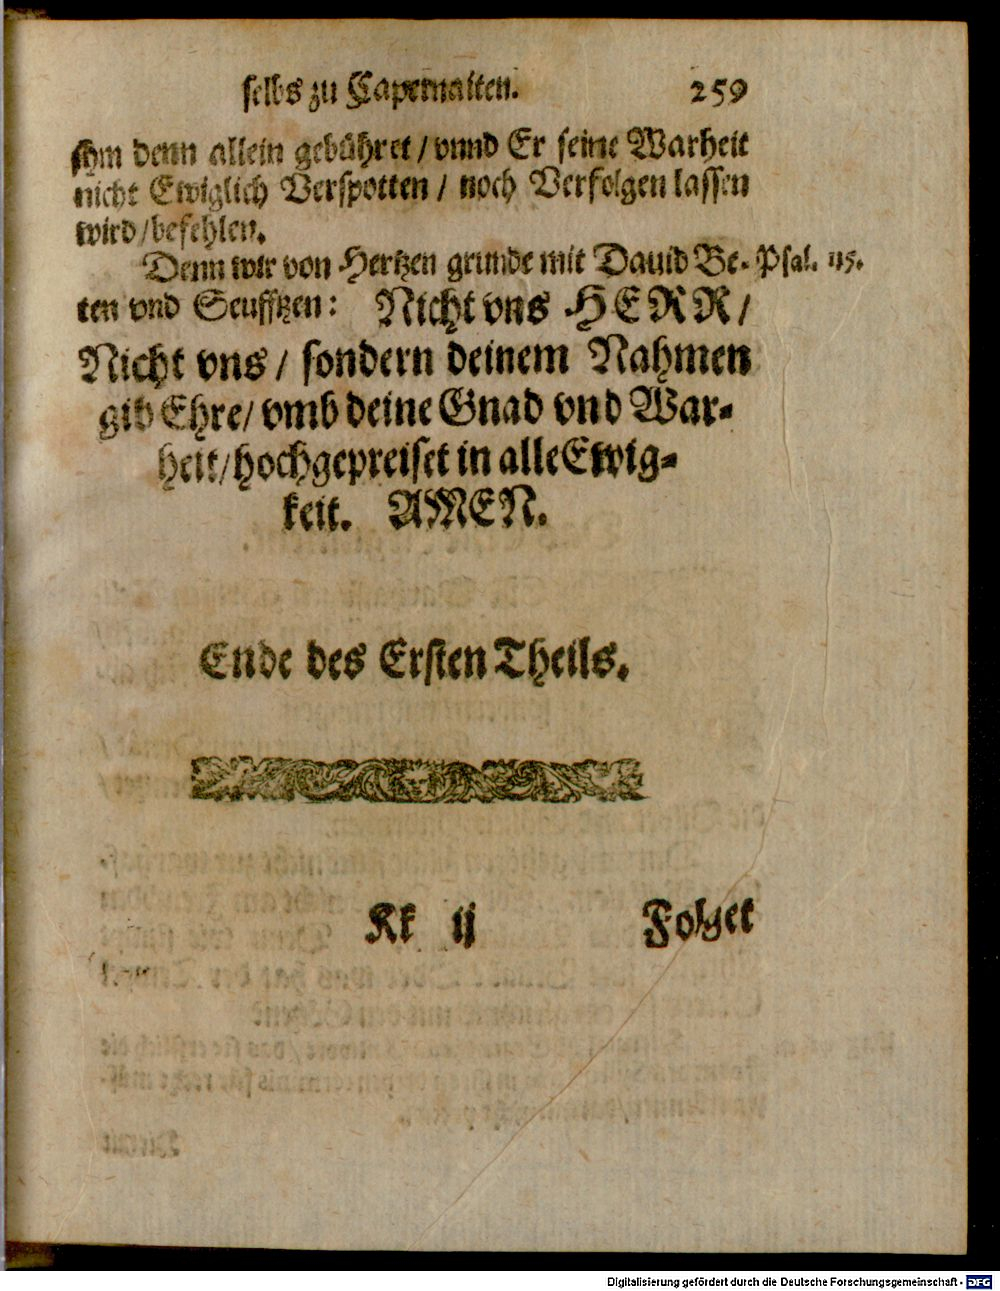 selbs zu Capernaiten. 259
jhm denn allein gebühret / vnnd Er seine Warheit
nicht Ewiglich Verspotten / noch Verfolgen lassen
wird / befehlen.
Denn wir von Hertzen grunde mit Dauid Be- Psal. 115.
ten vnd Seufftzen: Nicht vns HERR /
Nicht vns / sondern deinem Nahmen
gib Ehre / vmb deine Gnad vnd War-
heit / hochgepreiset in alle Ewig-
keit. AMEN.
Ende des Ersten Theils.
Kk ij Folget
Digitalisierung gefördert durch die Deutsche Forschungsgemeinschaft - DFG